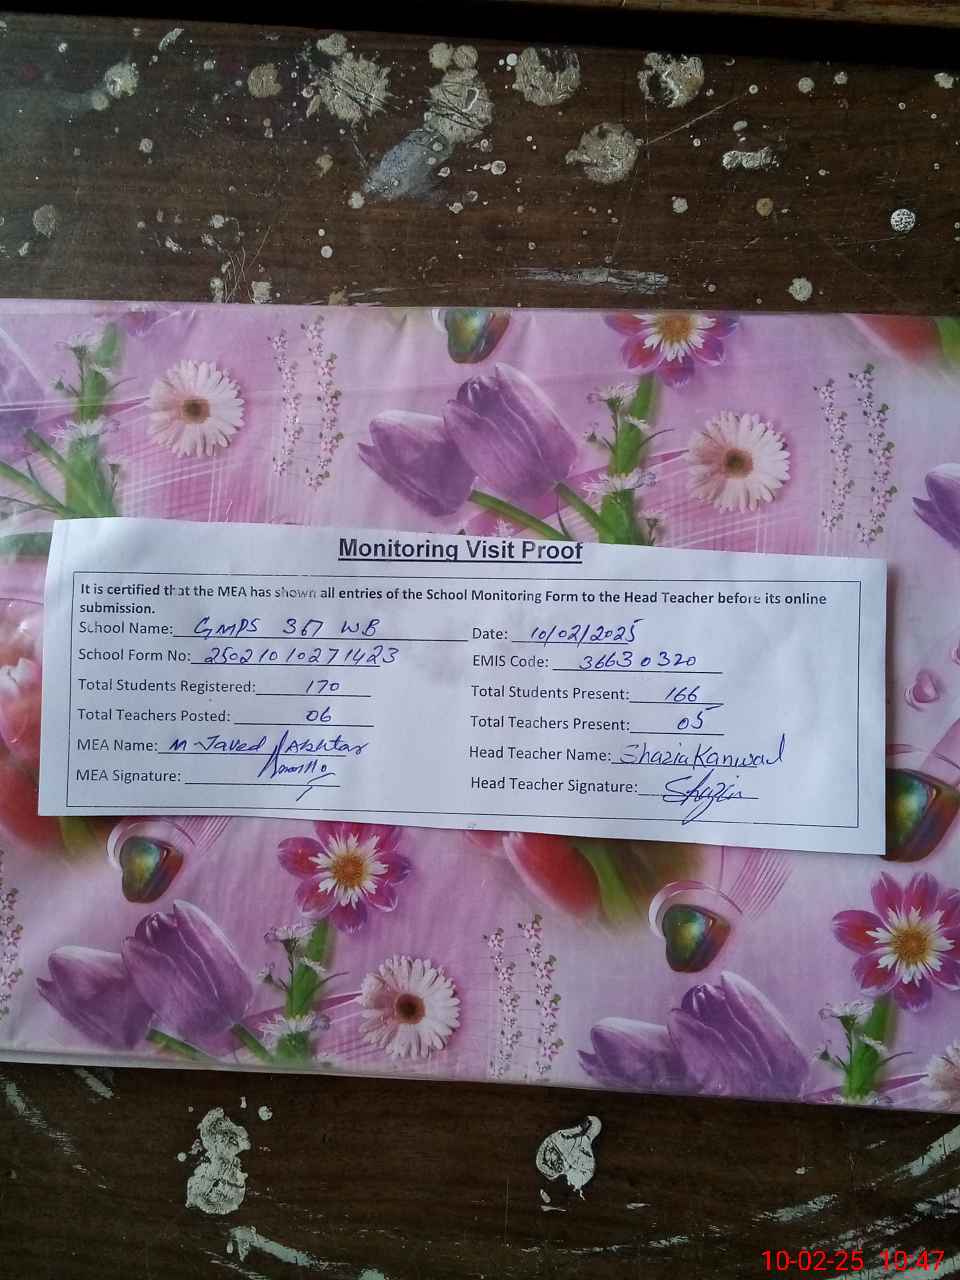 Monitoring Visit Proof
It is certified that the MEA has shown all entries of the School Monitoring Form to the Head Teacher before its online
submission.
School Name: GMPS 367 WB Date: 10/02/2025
School Form No: 25021010271423 EMIS Code: 36630320
Total Students Registered: 170 Total Students Present: 166
Total Teachers Posted: 06 Total Teachers Present: 05
MEA Name: M Javed Akhtar Head Teacher Name: Shazia Kanwal
MEA Signature: Head Teacher Signature: Shazia
10-02-25 10:47